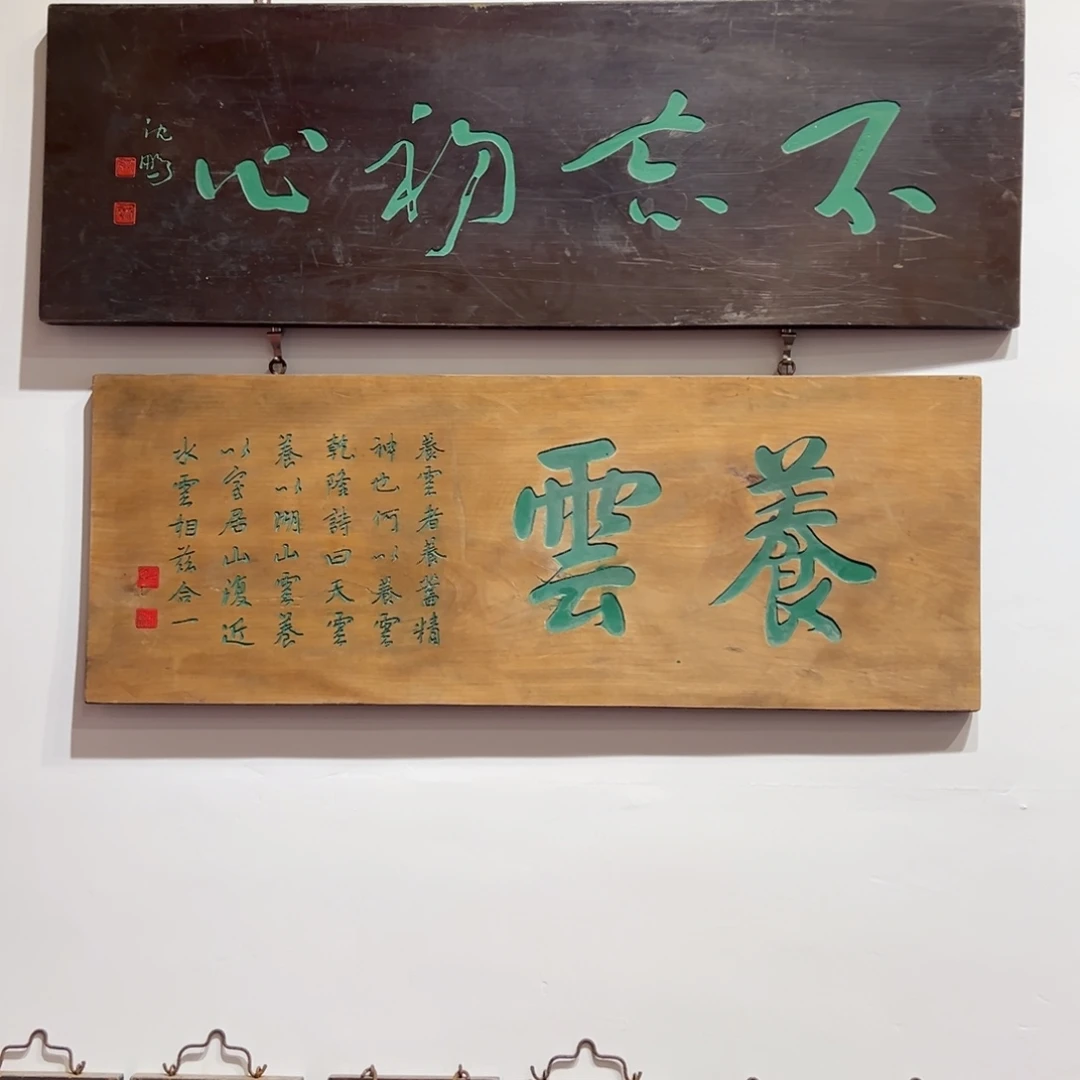 不忘初心
沈鹏
養雲
養雲者養蓄精
神也何以養雲
乾隆詩曰天雲
養以湖山雲養
以室居山復近
水雲相茲合一